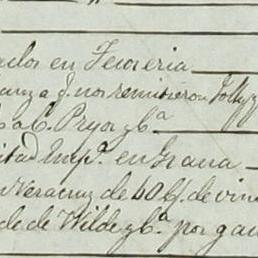 ador en Tesoreria
anza q. nos remitieron Jolly y
C. Pryor y Cª
itad Impª. en Grana
n Veracruz de 40 bs. de vin
de de Wilde y Cª por gan